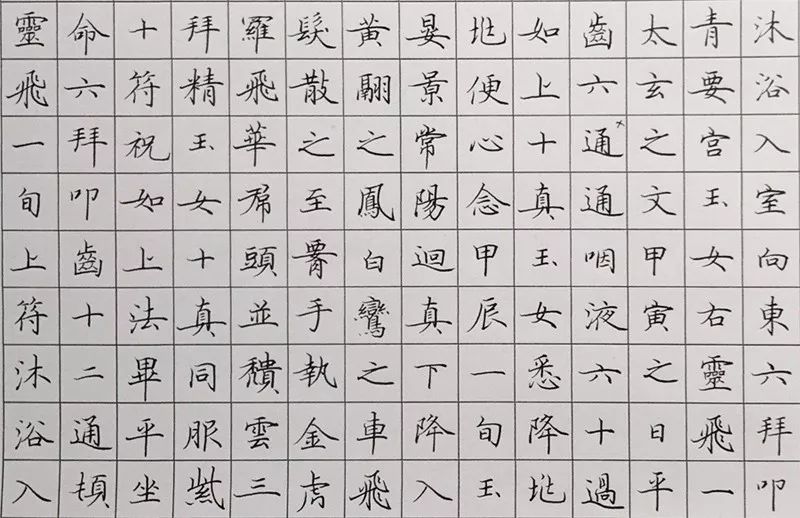 靈飛一旬上符沐浴入
命六拜叩齒十二通頓
十符祝如上法畢平坐
拜精玉女十真同服紫
羅飛華帬頭並穨雲三
髮散之至𦝫手執金虎
黃翮之鳳白鸞之車飛
晏景常陽迴真下降入
垗便心念甲辰一旬玉
如上十真玉女悉降垗
齒六通通咽液六十過
太玄之文甲寅之日平
青要宫玉女右靈飛一
沐浴入室向東六拜叩